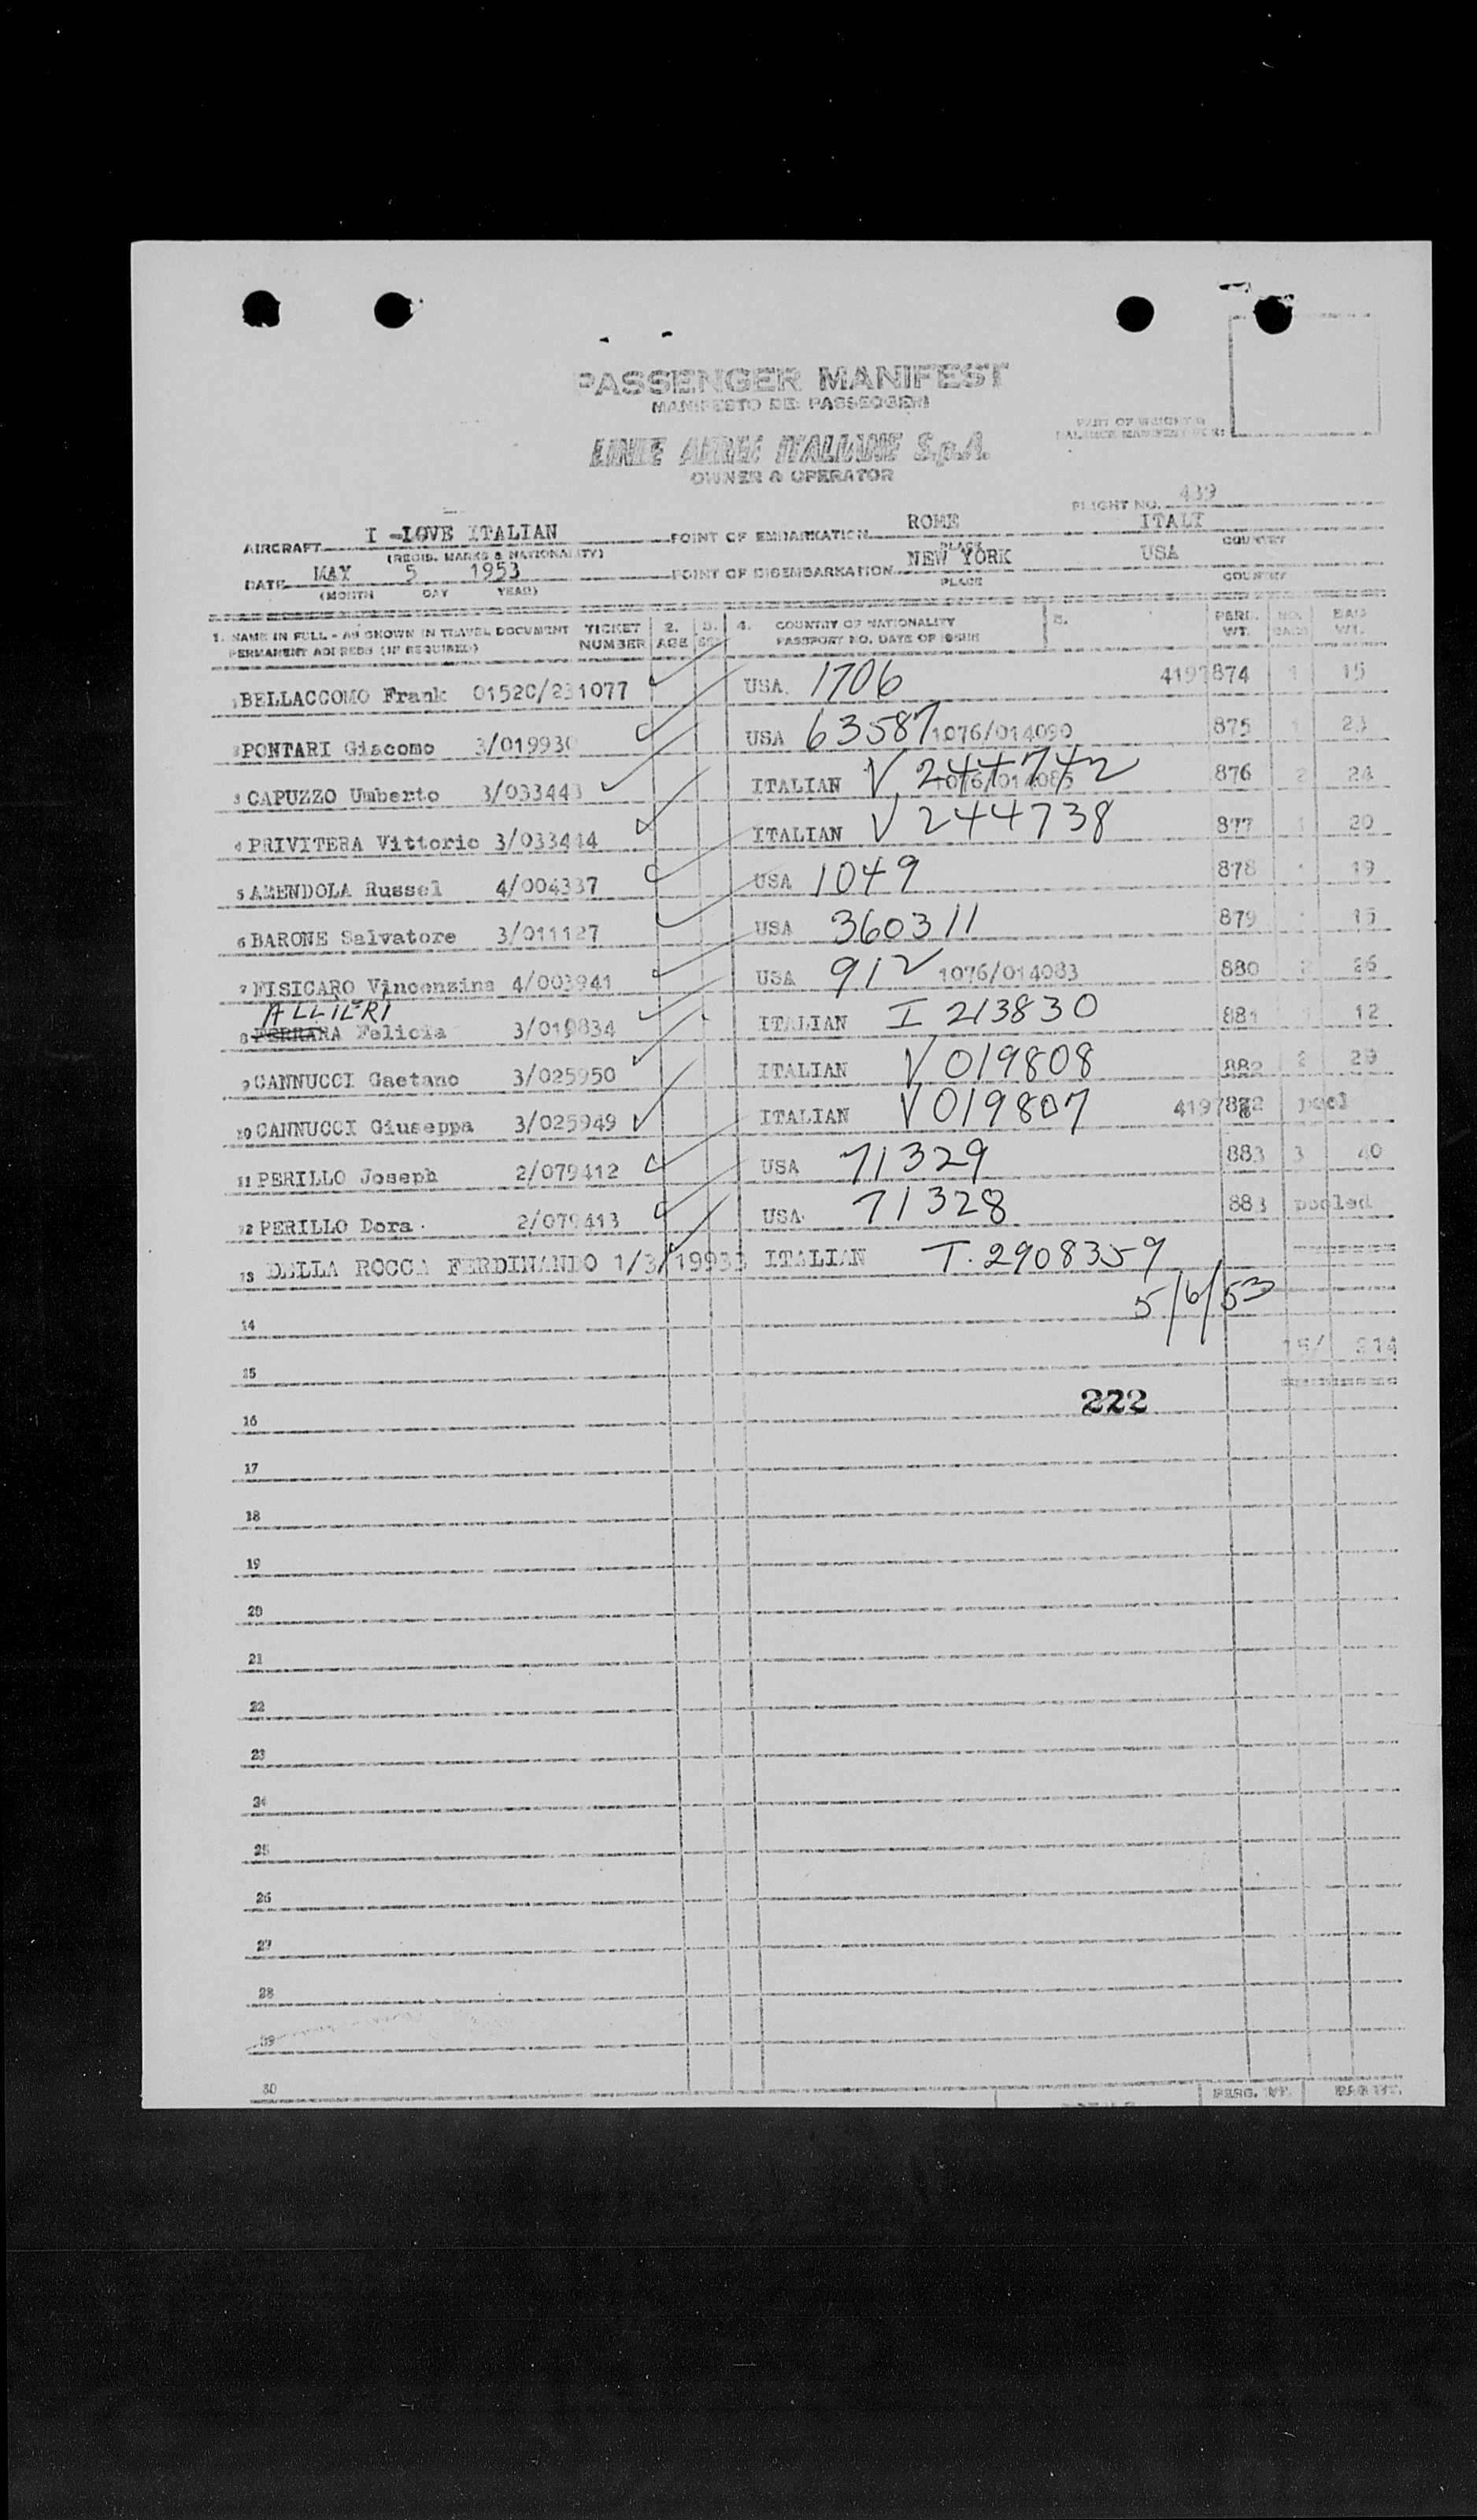 PASSENGER MANIFEST
MANIFESTO DEI PASSEGGERI
LINEE AEREE ITALIANE S.p.A.
OWNER & OPERATOR
PART OF WEIGHT &
BALANCE MANIFEST FOR:
FLIGHT NO. 439
AIRCRAFT I -LOVE ITALIAN POINT OF EMBARKATION ROME ITALY
(REGIS. MARKS & NATIONALITY) PLACE COUNTRY
DATE MAY 5 1953 POINT OF DISEMBARKATION NEW YORK USA
(MONTH DAY YEAR) PLACE COUNTRY
1. NAME IN FULL - AS SHOWN IN TRAVEL DOCUMENT TICKET 2. 3. 4. COUNTRY OF NATIONALITY 5. PERS. NO. BAG
PERMANENT ADDRESS (IF REQUIRED) NUMBER AGE SEX PASSPORT NO. DATE OF ISSUE WT. BAGS WT.
1 BELLACCOMO Frank 0152C/231077 USA 1706 4197874 1 15
2 PONTARI Giacomo 3/019930 USA 63587 1076/014090 875 1 23
3 CAPUZZO Umberto 3/033443 ITALIAN V 244742 1076/014085 876 2 24
4 PRIVITERA Vittorio 3/033444 ITALIAN V 244738 877 1 20
5 AMENDOLA Russel 4/004337 USA 1049 878 1 19
6 BARONE Salvatore 3/011127 USA 360311 879 1 15
7 FISICARO Vincenzina 4/003941 USA 912 1076/014083 880 2 26
ALLIERI
8 FERRARA Felicia 3/019834 ITALIAN I 213830 881 1 12
9 CANNUCCI Gaetano 3/025950 ITALIAN V 019808 882 2 20
10 CANNUCCI Giuseppa 3/025949 ITALIAN V 019807 4197882 pool
11 PERILLO Joseph 2/079412 USA 71329 883 3 40
12 PERILLO Dora 2/079413 USA 71328 883 pooled
13 DELLA ROCCA FERDINANDO 1/3/19933 ITALIAN T. 2908359
5/6/53
14
15/ 214
15
222
16
17
18
19
20
21
22
23
24
25
26
27
28
29
30
BAG WT.